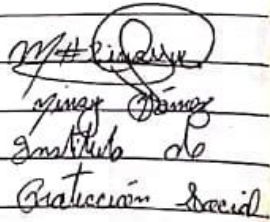 Yinzy Gómez
Instituto de
Protección Social